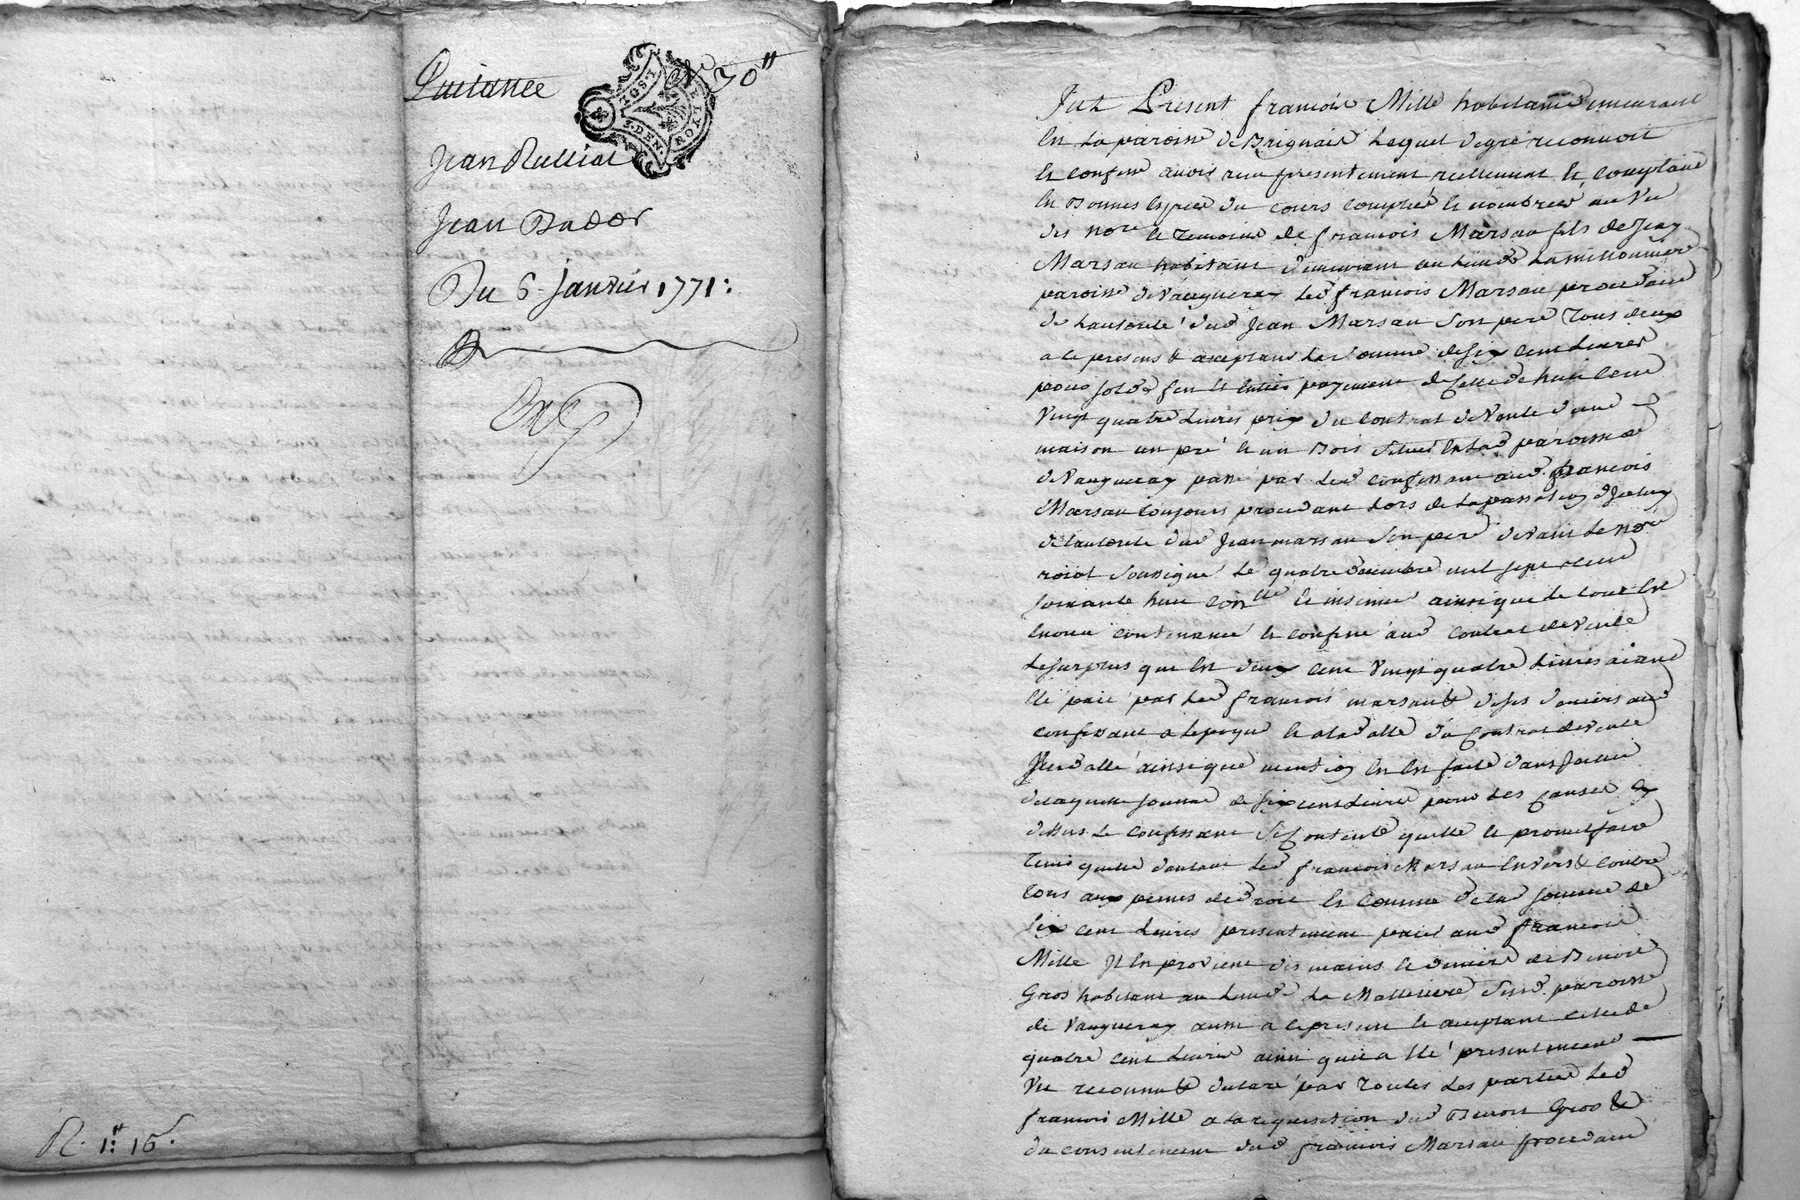 Quitance
70"
Jean Rulliat
Jean Bador
Du 6 Janvier 1771:
R. 1." 16
fut Présent françois Mille habitant demeurant
En La paroisse de Brignais Lequel degré reconnoit
Et confesse avoir reçu presentement réellement Et comptant
En Bonnes Especes du cours comptées Et nombrées au Vu
des Nore Et temoins de françois Marsau fils de Jean
Marsau habitant demeurant au Lieu de
paroisse de Vaugneray Led françois Marsau procedant
de Lautorité dud Jean Marsau Son pere Tous deux
a ce presens & acceptans La Somme de Six Cent Livres
pour Solde fin Et Entier payement de Celle de huit Cent
Vingt quatre Livres prix du Contrat de Vente dune
maison un pré Et un Bois Situés En Lad paroisse
de Vaugneray passé par Led Confessant aud françois
Marsau toujours procedant Lors de La passation diceluy
de Lautorité dud Jean marsau Son pere devant Le Nore
roial Soussigné Le quatre decembre mil Sept Cent
Soixante huit Conllé Et insinué ainsi que Le tout Est
Enoncé contenance Et confine aud Contrat de Vente
Le Surplus qui Est deux Cent Vingt quatre Livres aiant
Eté paié par Led françois marsault deses deniers aud
Confessant a Lepoque Et a La datte du Contrat de vente
Susdatté ainsi que mention En Est faite dans Icelui
delaquelle Somme de Six cent Livres pour Les Causes cy
dessus Le Confessant Se Contente quitte Et promet faire
tenir quitte dautant Led françois Marsau Envers & Contre
tous aux peines de droit Et Comme de Lad Somme de
Six Cent Livres presentement paiée aud françois
Mille Il En provient des mains Et deniers de Benoit
Gros habitant au Lieu de La Malletiere Susd paroisse
de Vaugneray aussi a ce present Et acceptant Celle de
quatre Cent Livres ainsi quil a Eté presentement
Vu reconnu & declaré par Toutes Les parties Led
françois Mille a La requisition dud Benoit Gros &
du consentement dud françois Marsau procedant